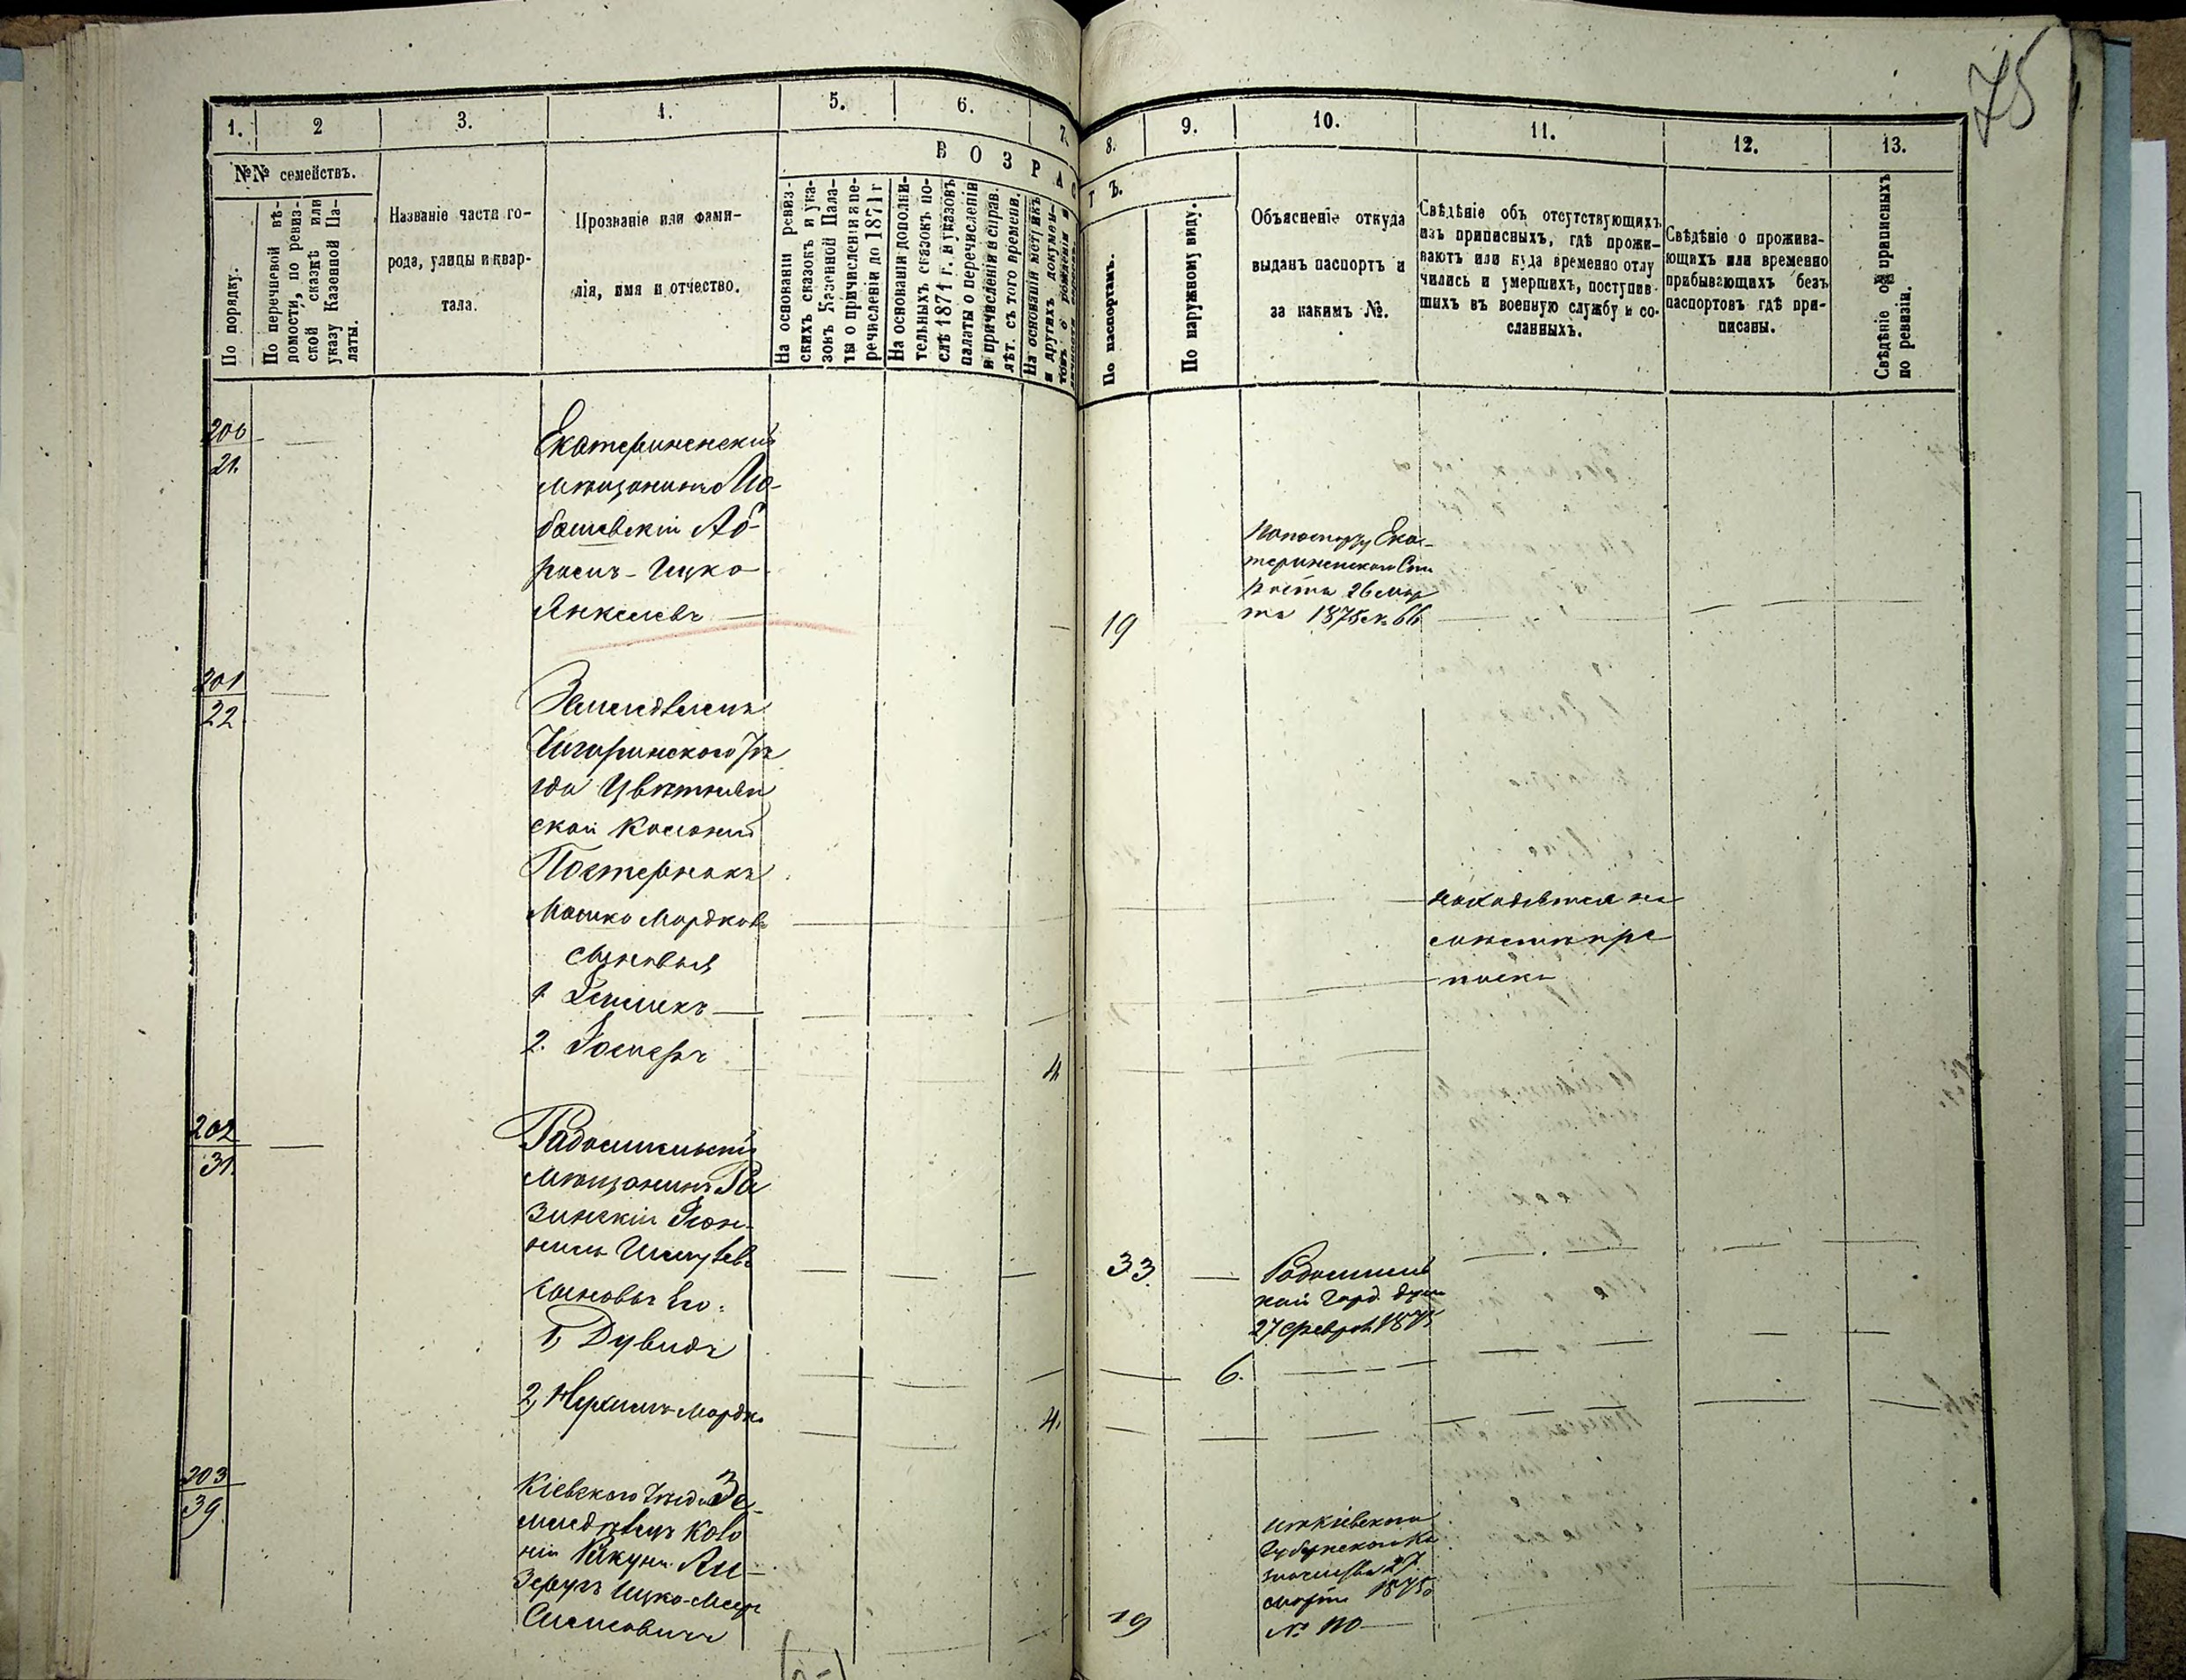 75
1.
2
3.
4.
5.
6.
7.
8.
9.
10.
11.
12.
13.
№№ семействъ.
ВОЗРАС
ТЪ.
По порядку.
По перечневой вѣ-
домости, по ревиз-
ской сказкѣ или
указу Казенной Па-
латы.
Названіе части го-
рода, улицы и квар-
тала.
Прозваніе или фами-
лія, имя и отчество.
На основаніи ревиз-
скихъ сказокъ и ука-
зовъ Казенной Пала-
ты о причисленіи и пе-
речисленіи до 1871 г
На основаніи дополни-
тельныхъ сказокъ по-
слѣ 1871 г. и указовъ
палаты о перечисленіи
и причисленіи и справ.
лѣт. съ того времени.
На основаніи метрикъ
и другихъ докумен-
товъ о рожденіи и
По паспортамъ.
По наружному виду.
Объясненіе откуда
выданъ паспортъ и
за какимъ №.
Свѣдѣніе объ отсутствующихъ
изъ приписныхъ, гдѣ прожи-
ваютъ или куда временно отлу
чились и умершихъ, поступив-
шихъ въ военную службу и со-
сланныхъ.
Свѣдѣніе о прожива-
ющихъ или временно
прибывающихъ безъ
паспортовъ гдѣ при-
писаны.
Свѣдѣніе объ приписныхъ
по ревизіи.
200
21.
Екатериненскій
мѣщанинъ
Аб-
рамъ-Ицко
Янкелевъ
19
Екат-
териненскаго
26 мар
та 1875 № 66
201
22
Земледѣлецъ
Чигиринскаго Уѣ
зда
ской Колоніи
Постернакъ
Мошко Мордковъ
сыновья
1
2.
4
находится на
мѣстѣ при
писки
202
31.
Радомысльскій
мѣщанинъ Ра
зинскій
сыновья его:
1, Дувидъ
2, Нухимъ-Мордк.
33.
6.
4.
Радомысль
ской Город. Думы
27 Февраля 1875
203
39.
Кіевскаго Уѣзда Зе-
мледѣлецъ Коло
ніи
Ицко-Меер
19
изъ Кіевскаго
Губернскаго Ка
значейства 27
марта 1875
№ 110